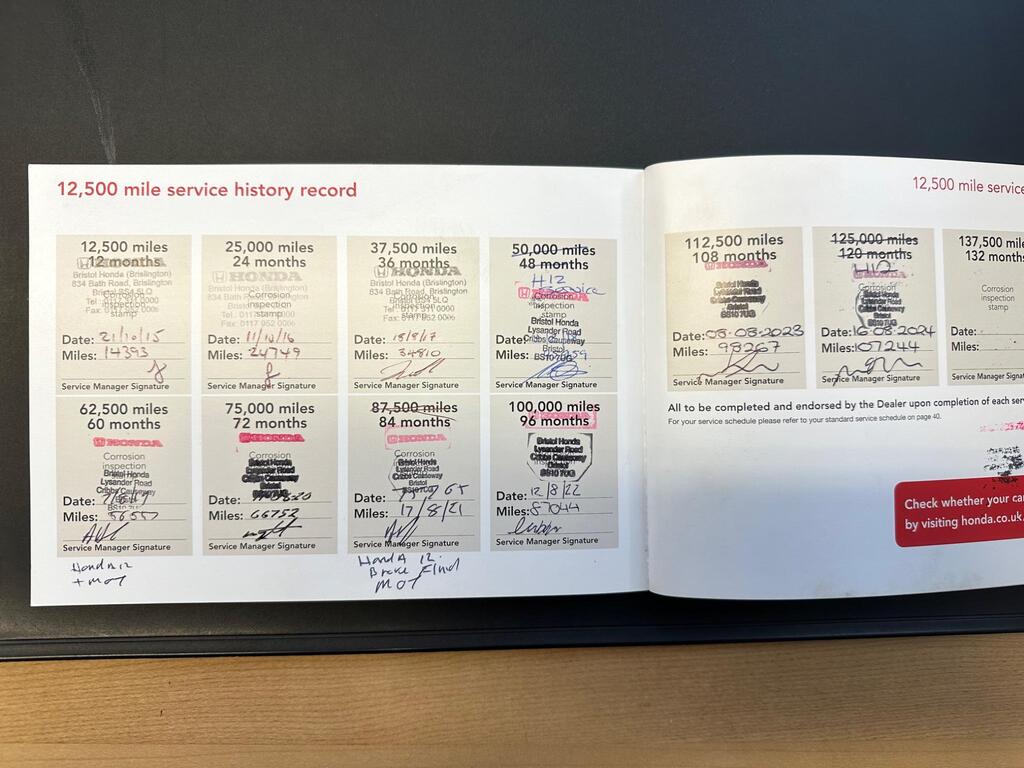 12,500 mile service history record
12,500 miles
12 months
HONDA
Bristol Honda (Brislington)
834 Bath Road, Brislington
Bristol BS4 5LQ
Corrosion
inspection
stamp
Date: 21/10/15
Miles: 14393
Service Manager Signature
25,000 miles
24 months
HONDA
Bristol Honda (Brislington)
834 Bath Road, Brislington
Corrosion
inspection
stamp
Fax: 0117 952 0006
Date: 11/10/16
Miles: 24749
Service Manager Signature
37,500 miles
36 months
HONDA
Bristol Honda (Brislington)
834 Bath Road, Brislington
Bristol BS4 5LQ
Corrosion
inspection
stamp
Date: 18/8/17
Miles: 34810
Service Manager Signature
50,000 miles
48 months
H12
Service
HONDA
Corrosion
inspection
stamp
Bristol Honda
Lysander Road
Cribbs Causeway
Bristol
BS10 7UG
Date:
Miles:
Service Manager Signature
62,500 miles
60 months
HONDA
Corrosion
inspection
Bristol Honda
Lysander Road
Cribbs Causeway
Bristol
Date:
Miles: 56557
Service Manager Signature
Honda 12
+ MOT
75,000 miles
72 months
HONDA
Corrosion
inspection
Bristol Honda
Lysander Road
Cribbs Causeway
Bristol
Date:
Miles: 66752
Service Manager Signature
87,500 miles
84 months
HONDA
Corrosion
Bristol Honda
Lysander Road
Cribbs Causeway
Bristol
Date:
Miles: 17/8/21
Service Manager Signature
Honda 12
Brake Fluid
MOT
100,000 miles
96 months
HONDA
Bristol Honda
Lysander Road
Cribbs Causeway
Bristol
BS10 7UG
Date: 12/8/22
Miles: 87044
Service Manager Signature
12,500 mile service
112,500 miles
108 months
HONDA
Bristol Honda
Lysander Road
Cribbs Causeway
Bristol
BS10 7UG
Date: 08.08.2023
Miles: 98267
Service Manager Signature
125,000 miles
120 months
H12
HONDA
Corrosion
Bristol Honda
Lysander Road
Cribbs Causeway
Bristol
BS10 7UG
Date: 16.08.2024
Miles: 107244
Service Manager Signature
137,500
132 months
Corrosion
inspection
stamp
Date:
Miles:
Service Manager
All to be completed and endorsed by the Dealer upon completion of each
For your service schedule please refer to your standard service schedule on page 40.
Check whether your
by visiting honda.co.uk